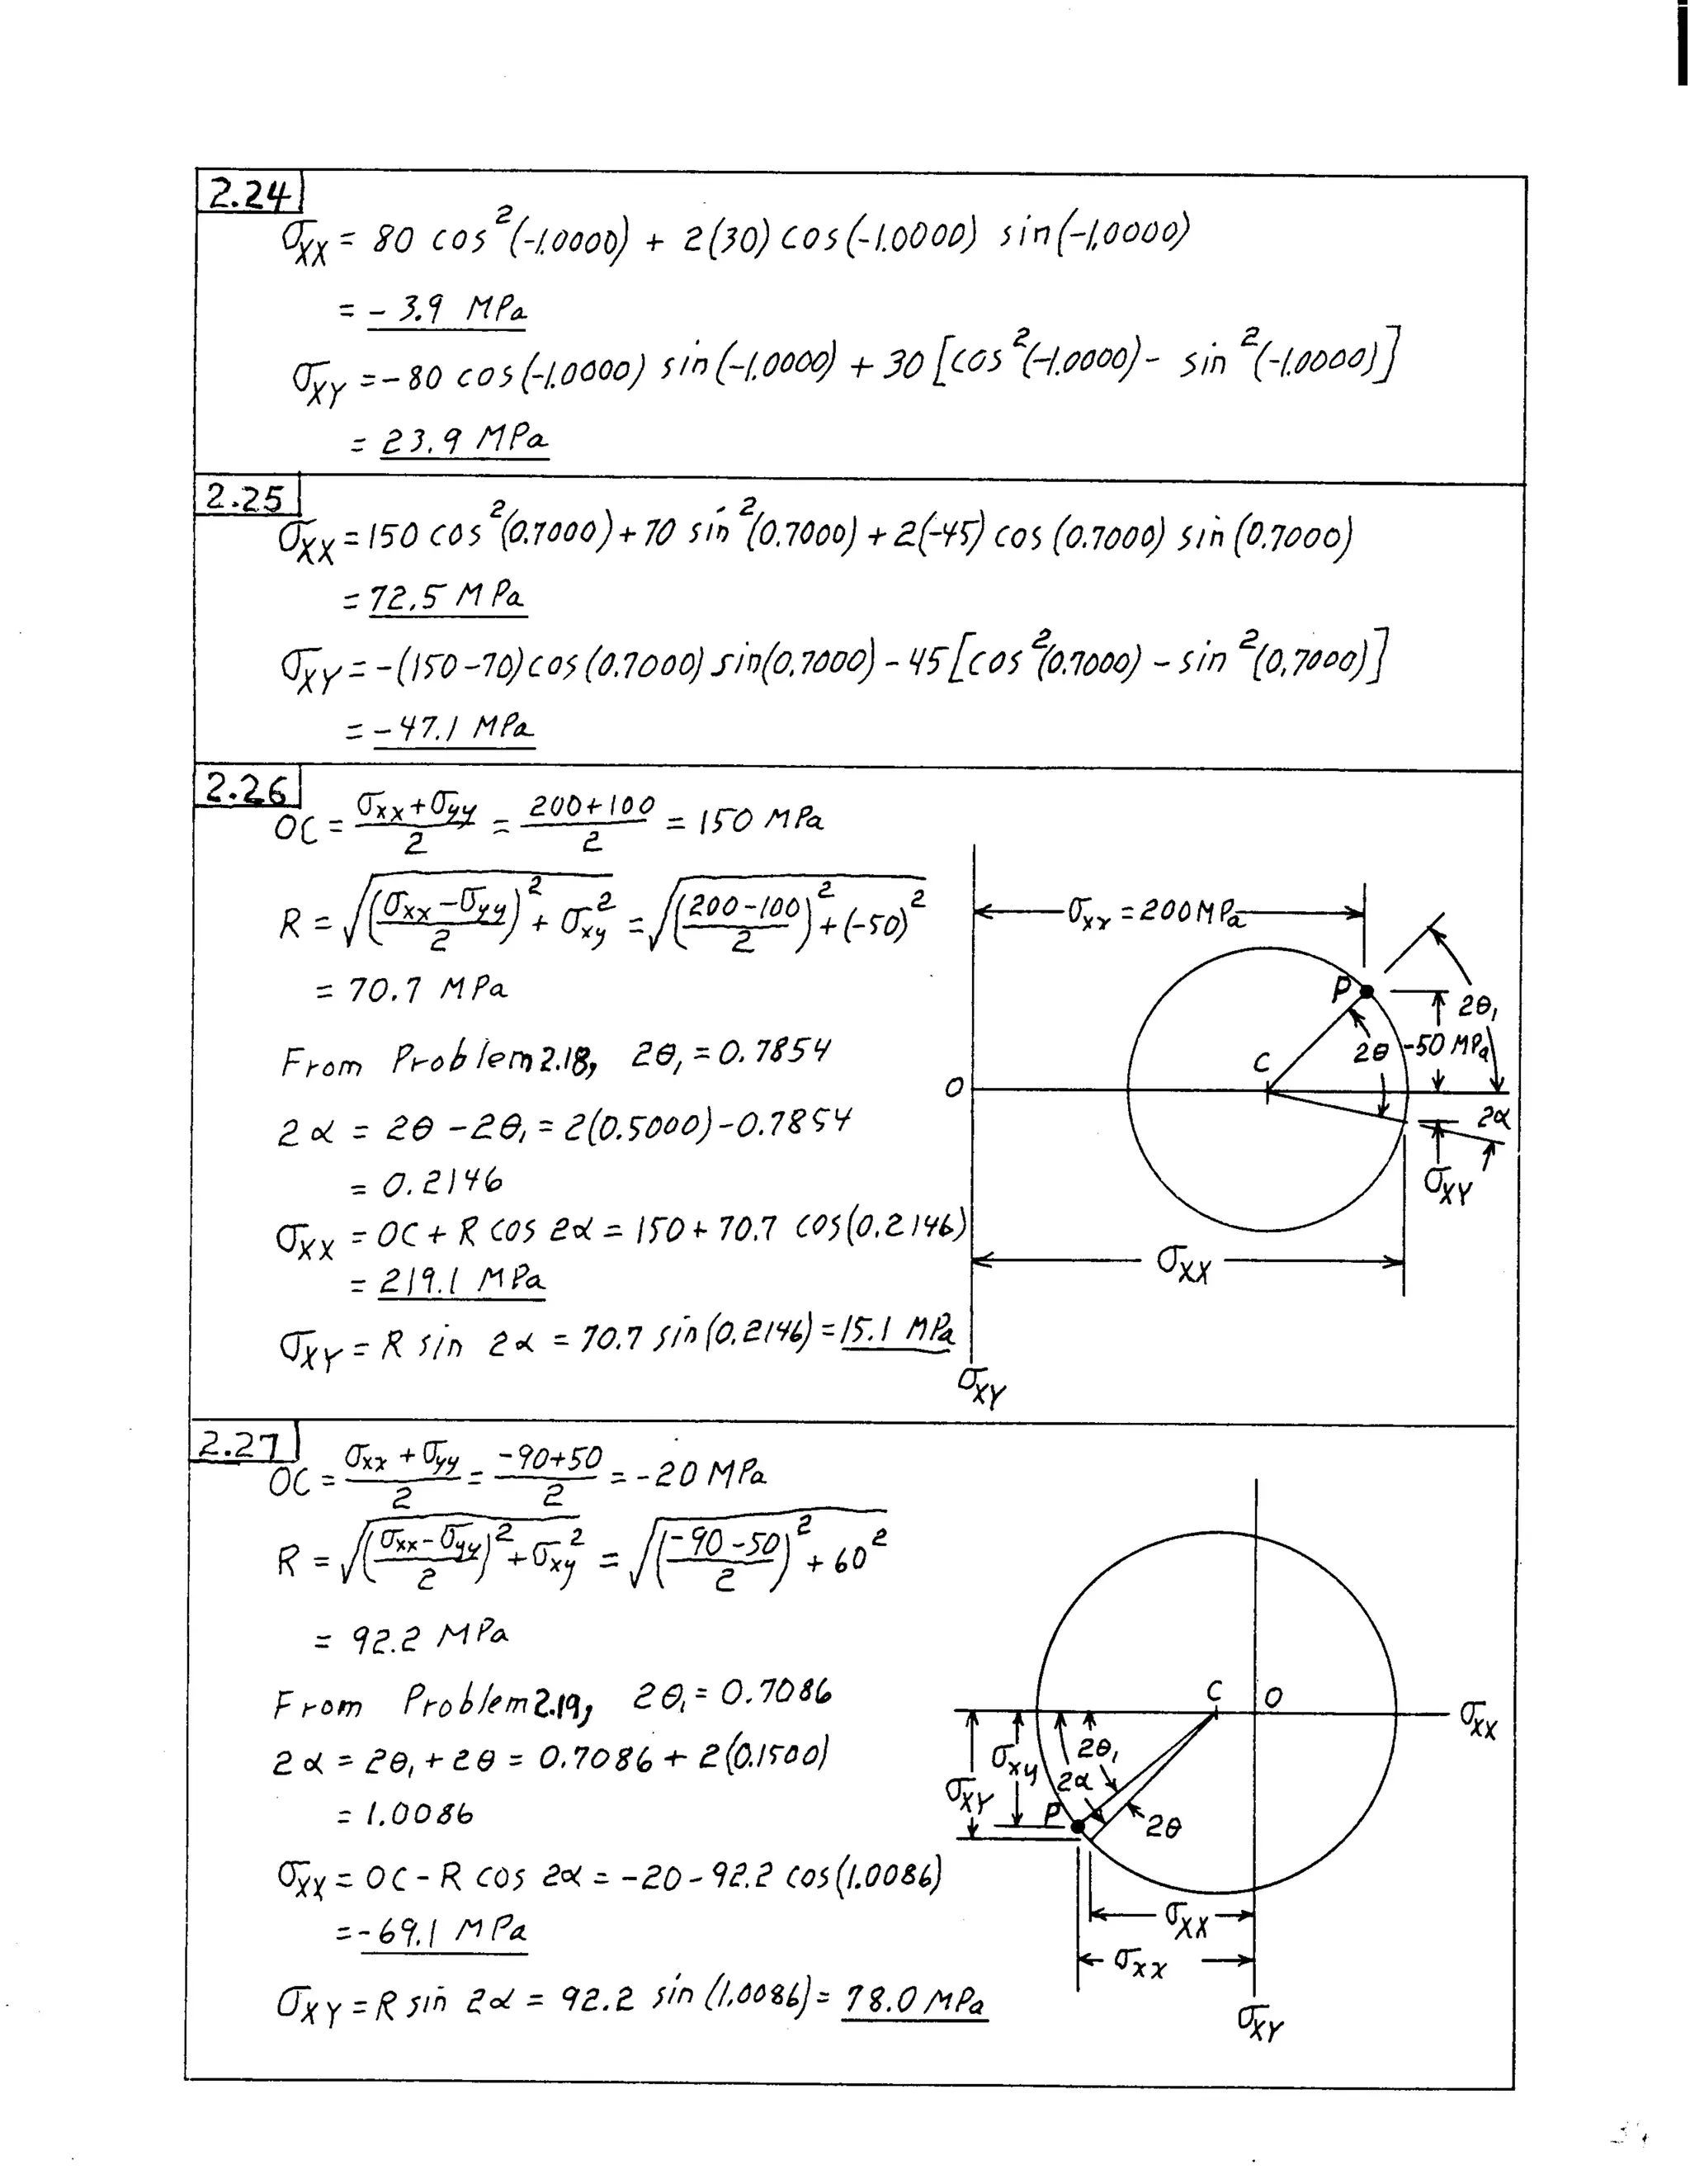 2.24
σXX = 80 cos²(-1.0000) + 2(30) cos(-1.0000) sin(-1.0000)
= -3.9 MPa
σXY = -80 cos(-1.0000) sin(-1.0000) + 30[cos²(-1.0000) - sin²(-1.0000)]
= 23.9 MPa
2.25
σXX = 150 cos²(0.7000) + 70 sin²(0.7000) + 2(-45) cos(0.7000) sin(0.7000)
= 72.5 MPa
σXY = -(150-70) cos(0.7000) sin(0.7000) - 45[cos²(0.7000) - sin²(0.7000)]
= -47.1 MPa
2.26
OC = (σxx + σyy)/2 = (200+100)/2 = 150 MPa
R = √(((σxx - σyy)/2)² + σxy²) = √(((200-100)/2)² + (-50)²)
= 70.7 MPa
From Problem 2.18, 2θ₁ = 0.7854
2α = 2θ - 2θ₁ = 2(0.5000) - 0.7854
= 0.2146
σXX = OC + R cos 2α = 150 + 70.7 cos(0.2146)
= 219.1 MPa
σXY = R sin 2α = 70.7 sin(0.2146) = 15.1 MPa
σxx = 200 MPa
P
2θ₁
2θ
-50 MPa
C
O
2α
σXY
σXX
σXY
2.27
OC = (σxx + σyy)/2 = (-90+50)/2 = -20 MPa
R = √(((σxx - σyy)/2)² + σxy²) = √(((-90-50)/2)² + 60²)
= 92.2 MPa
From Problem 2.19, 2θ₁ = 0.7086
2α = 2θ₁ + 2θ = 0.7086 + 2(0.1500)
= 1.0086
σXX = OC - R cos 2α = -20 - 92.2 cos(1.0086)
= -69.1 MPa
σXY = R sin 2α = 92.2 sin(1.0086) = 78.0 MPa
C
O
σXX
σxy
2θ₁
σXY
2α
P
2θ
σXX
σxx
σXY